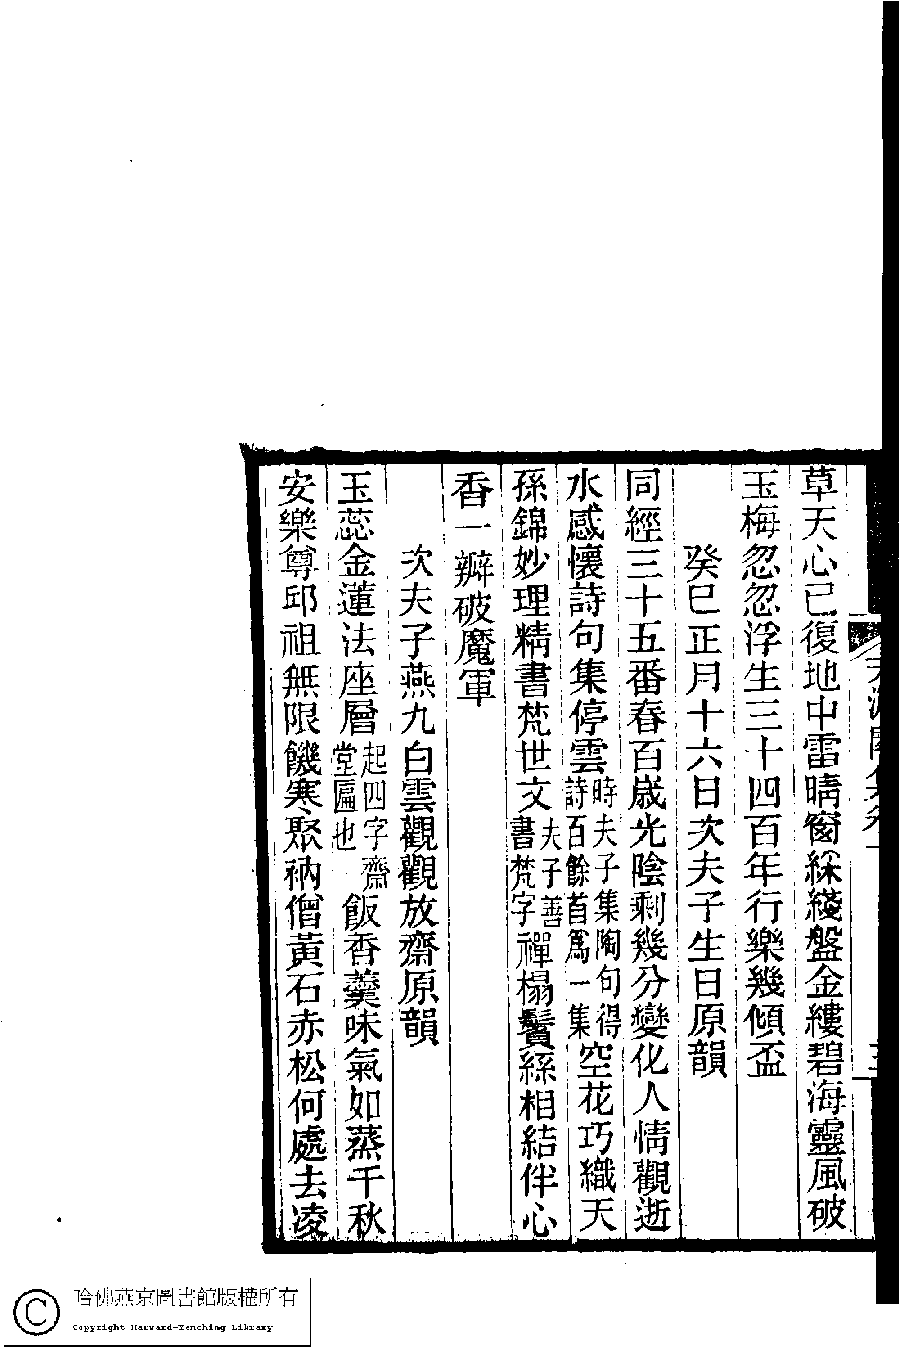 草天心已復地中雷晴窗綵綫盤金縷碧海靈風破
玉梅忽忽浮生三十四百年行樂幾傾盃
癸巳正月十六日次夫子生日原韻
同經三十五番春百歲光陰剩幾分變化人情觀逝
水感懷詩句集停雲時夫子集陶句得詩百餘首爲一集空花巧織天
孫錦妙理精書梵世文夫子善書梵字禪榻鬢絲相結伴心
香一瓣破魔軍
次夫子燕九白雲觀觀放齋原韻
玉蕊金蓮法座層起四字齋堂匾也飯香羹味氣如蒸千秋
安樂尊邱祖無限饑寒聚衲僧黃石赤松何處去凌
哈佛燕京圖書館版權所有
Copyright Harvard-Yenching Library